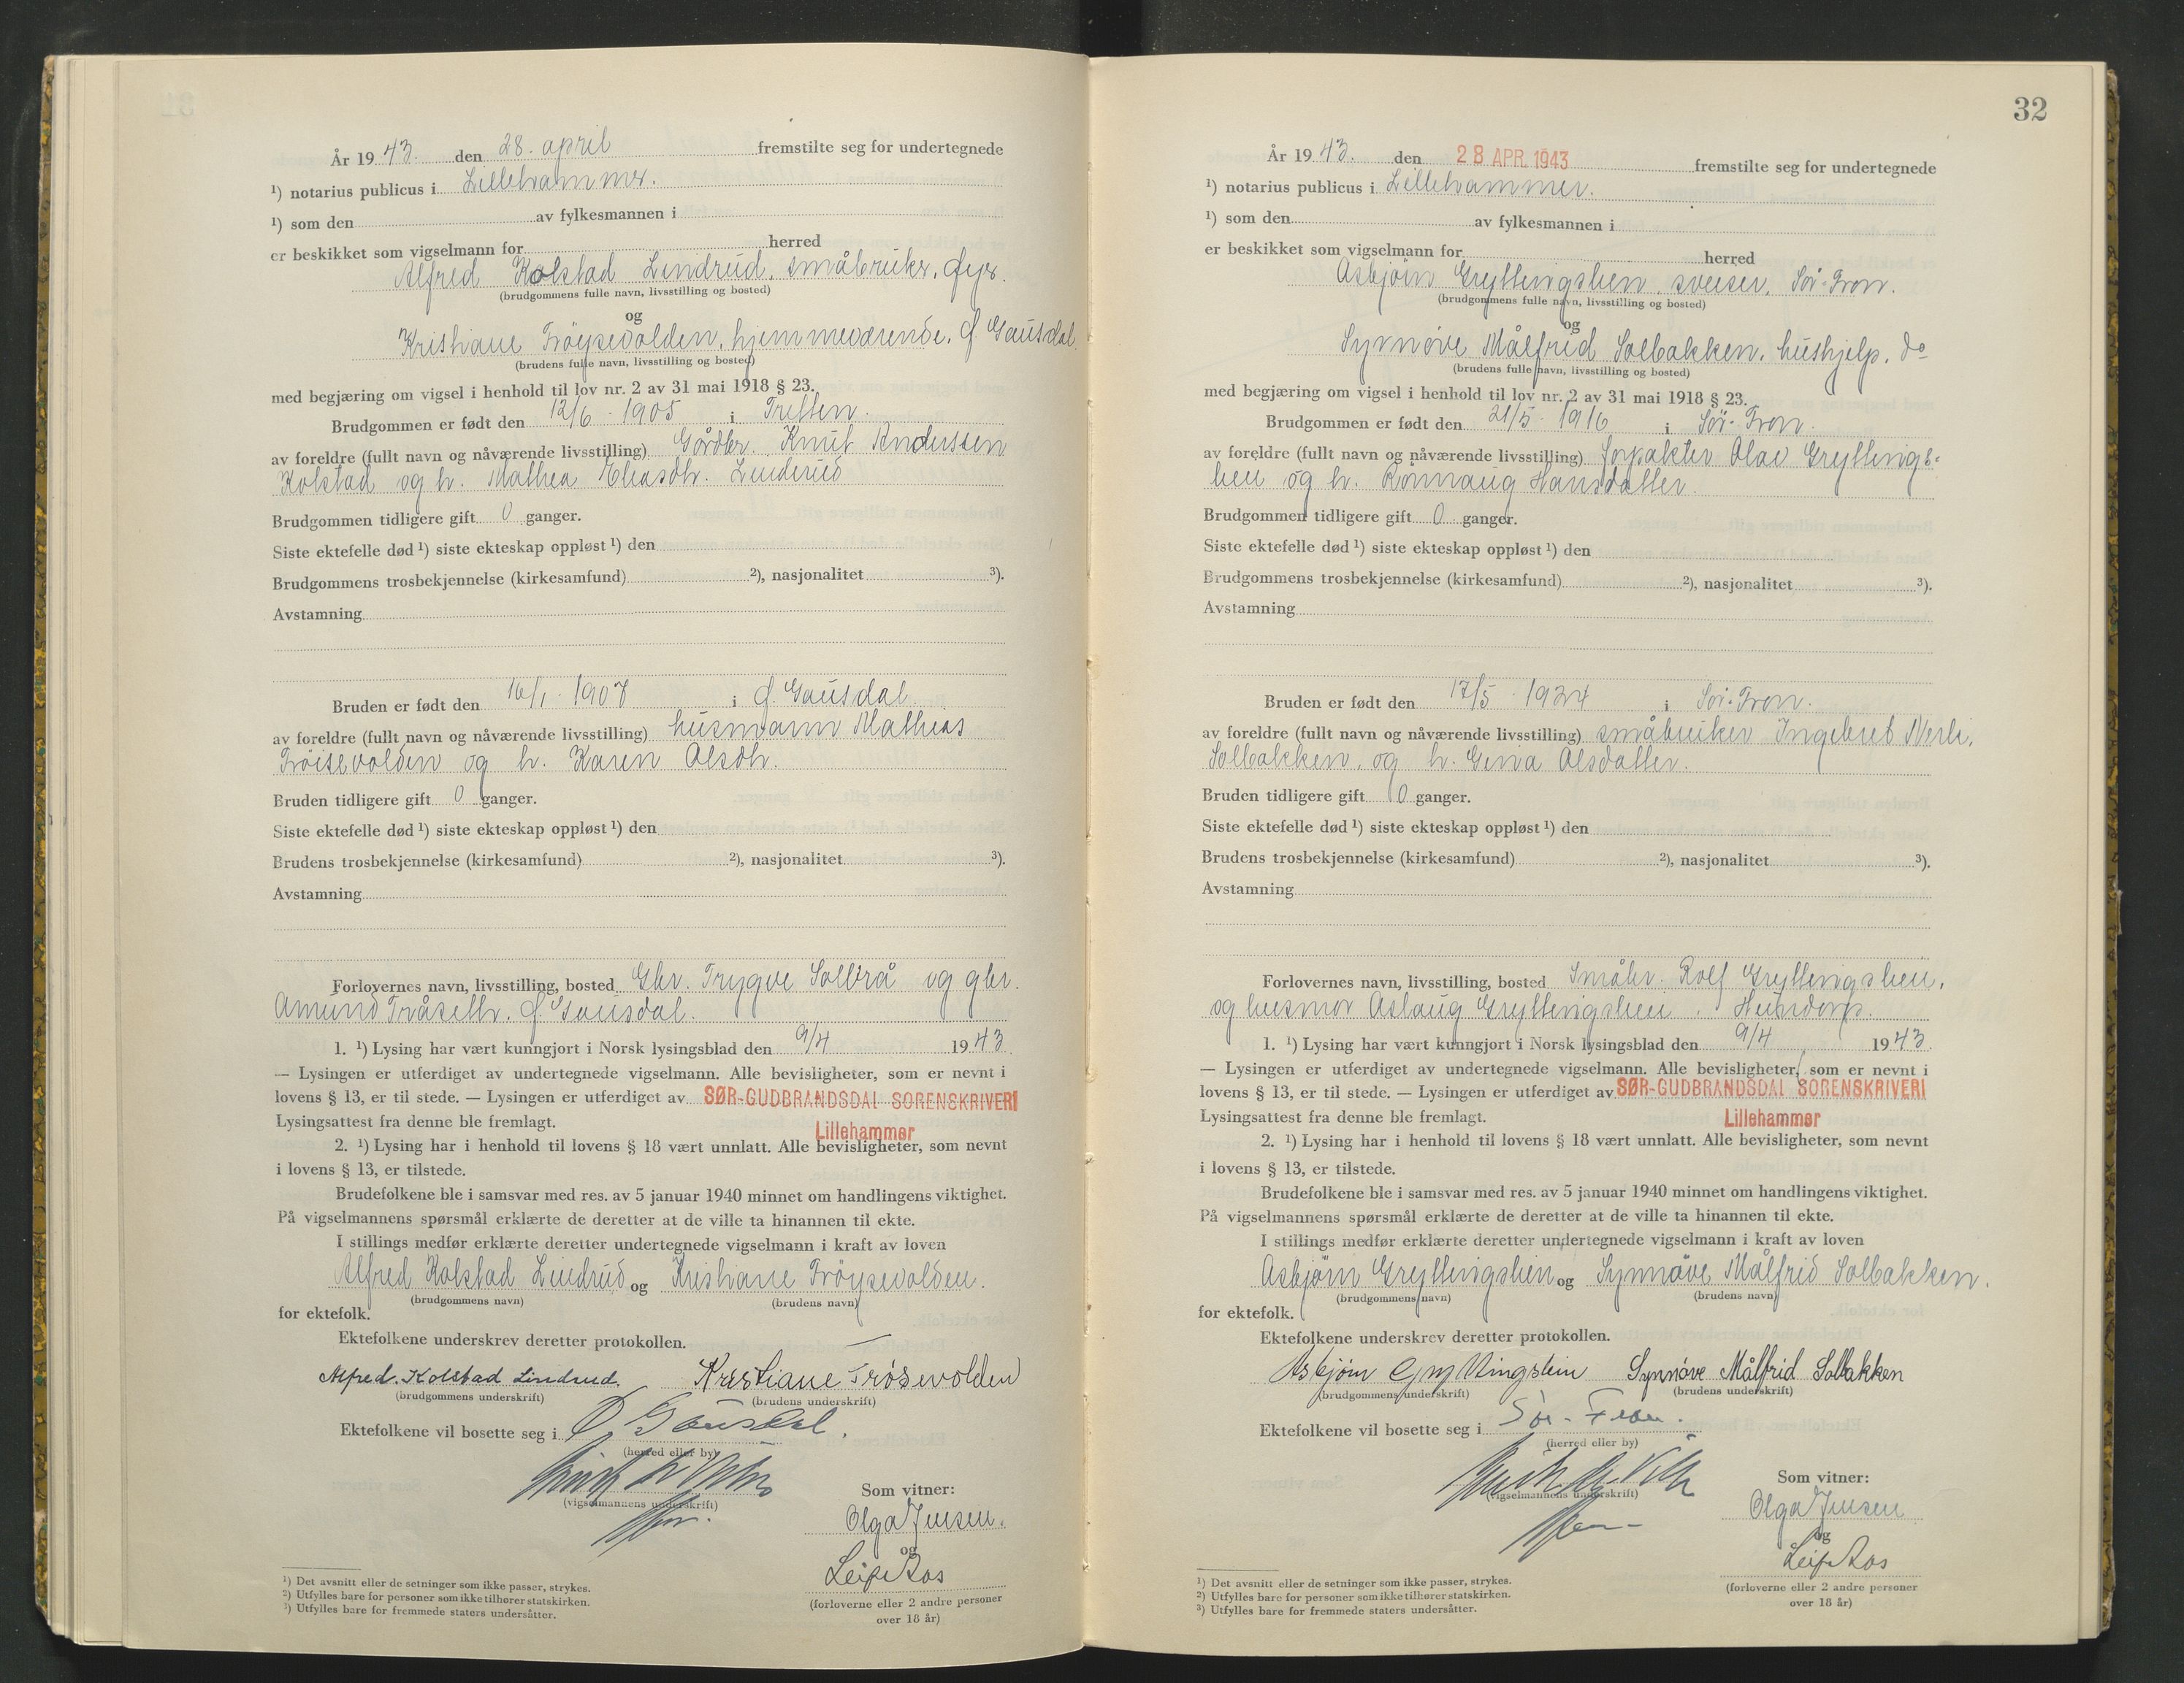 År 1943. den 28. april fremstilte seg for undertegnede
¹) notarius publicus i Lillehammer.
¹) som den av fylkesmannen i
er beskikket som vigselmann for herred
Alfred Kolstad Lindrud, småbruker, Øyer.
(brudgommens fulle navn, livsstilling og bosted)
og
Kristiane Tröysevolden, hjemmeværende, Ø Gausdal
(brudens fulle navn, livsstilling og bosted)
med begjæring om vigsel i henhold til lov nr. 2 av 31 mai 1918 § 23.
Brudgommen er født den 12/6 - 1905 i Tretten.
av foreldre (fullt navn og nåværende livsstilling) Gårdbr. Knut Andersen
Kolstad og h. Mathea Eliasdtr. Linderud
Brudgommen tidligere gift 0 ganger.
Siste ektefelle død ¹) siste ekteskap oppløst ¹) den
Brudgommens trosbekjennelse (kirkesamfund) ²), nasjonalitet ³).
Avstamning
Bruden er født den 16/1 - 1907 i Ø. Gausdal.
av foreldre (fullt navn og nåværende livsstilling) husmann Mathias
Tröisevolden og h. Karen Olsdtr.
Bruden tidligere gift 0 ganger.
Siste ektefelle død ¹) siste ekteskap oppløst ¹) den
Brudens trosbekjennelse (kirkesamfund) ²), nasjonalitet ³).
Avstamning
Forlovernes navn, livsstilling, bosted Gbr. Trygve Solbrå og gbr.
Amund Tråseth. Ø Gausdal.
1. ¹) Lysing har vært kunngjort i Norsk lysingsblad den 9/4 1943
— Lysingen er utferdiget av undertegnede vigselmann. Alle bevisligheter, som er nevnt i
lovens § 13, er til stede. — Lysingen er utferdiget av SØR-GUDBRANDSDAL SORENSKRIVERI
Lysingsattest fra denne ble fremlagt. Lillehammer
2. ¹) Lysing har i henhold til lovens § 18 vært unnlatt. Alle bevisligheter, som nevnt
i lovens § 13, er tilstede.
Brudefolkene ble i samsvar med res. av 5 januar 1940 minnet om handlingens viktighet.
På vigselmannens spørsmål erklærte de deretter at de ville ta hinannen til ekte.
I stillings medfør erklærte deretter undertegnede vigselmann i kraft av loven
Alfred Kolstad Lindrud og Kristiane Tröysevolden.
(brudgommens navn) (brudens navn)
for ektefolk.
Ektefolkene underskrev deretter protokollen.
Alfred. Kolstad Lindrud. Kristiane Trösevolden
(brudgommens underskrift) (brudens underskrift)
Ektefolkene vil bosette seg i Ø Gausdal.
(herred eller by)
(vigselmannens underskrift)
Som vitner:
Olga Jensen.
og
Leif Aas
(forloverne eller 2 andre personer
over 18 år)
¹) Det avsnitt eller de setninger som ikke passer, strykes.
²) Utfylles bare for personer som ikke tilhører statskirken.
³) Utfylles bare for fremmede staters undersåtter.
32
År 1943. den 28 APR. 1943 fremstilte seg for undertegnede
¹) notarius publicus i Lillehammer.
¹) som den av fylkesmannen i
er beskikket som vigselmann for herred
Asbjörn Gryttingslien, sveiser, Sör-Fron.
(brudgommens fulle navn, livsstilling og bosted)
og
Synnöve Målfrid Solbakken, hushjelp, do
(brudens fulle navn, livsstilling og bosted)
med begjæring om vigsel i henhold til lov nr. 2 av 31 mai 1918 § 23.
Brudgommen er født den 21/5 - 1916 i Sör-Fron.
av foreldre (fullt navn og nåværende livsstilling) forpakter Olav Gryttings-
lien og h. Rönnaug Hansdatter.
Brudgommen tidligere gift 0 ganger.
Siste ektefelle død ¹) siste ekteskap oppløst ¹) den
Brudgommens trosbekjennelse (kirkesamfund) ²), nasjonalitet ³).
Avstamning
Bruden er født den 17/5 - 1924 i Sör-Fron.
av foreldre (fullt navn og nåværende livsstilling) småbruker Ingebret
Solbakken, og h. Gina Olsdatter.
Bruden tidligere gift 0 ganger.
Siste ektefelle død ¹) siste ekteskap oppløst ¹) den
Brudens trosbekjennelse (kirkesamfund) ²), nasjonalitet ³).
Avstamning
Forlovernes navn, livsstilling, bosted Småbr. Rolf Gryttingslien,
og husmor Aslaug Gryttingslien, Hundorp.
1. ¹) Lysing har vært kunngjort i Norsk lysingsblad den 9/4 1943.
— Lysingen er utferdiget av undertegnede vigselmann. Alle bevisligheter, som er nevnt i
lovens § 13, er til stede. — Lysingen er utferdiget av SØR-GUDBRANDSDAL SORENSKRIVERI
Lysingsattest fra denne ble fremlagt. Lillehammer
2. ¹) Lysing har i henhold til lovens § 18 vært unnlatt. Alle bevisligheter, som nevnt
i lovens § 13, er tilstede.
Brudefolkene ble i samsvar med res. av 5 januar 1940 minnet om handlingens viktighet.
På vigselmannens spørsmål erklærte de deretter at de ville ta hinannen til ekte.
I stillings medfør erklærte deretter undertegnede vigselmann i kraft av loven
Asbjörn Gryttingslien og Synnöve Målfrid Solbakken.
(brudgommens navn) (brudens navn)
for ektefolk.
Ektefolkene underskrev deretter protokollen.
Asbjörn Gryttingslien Synnöve Målfrid Solbakken
(brudgommens underskrift) (brudens underskrift)
Ektefolkene vil bosette seg i Sör-Fron.
(herred eller by)
(vigselmannens underskrift)
Som vitner:
Olga Jensen
og
Leif Aas
(forloverne eller 2 andre personer
over 18 år)
¹) Det avsnitt eller de setninger som ikke passer, strykes.
²) Utfylles bare for personer som ikke tilhører statskirken.
³) Utfylles bare for fremmede staters undersåtter.